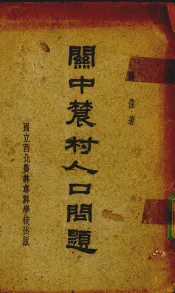 保著
關中農村人口問題
國立西北農林專科學校出版